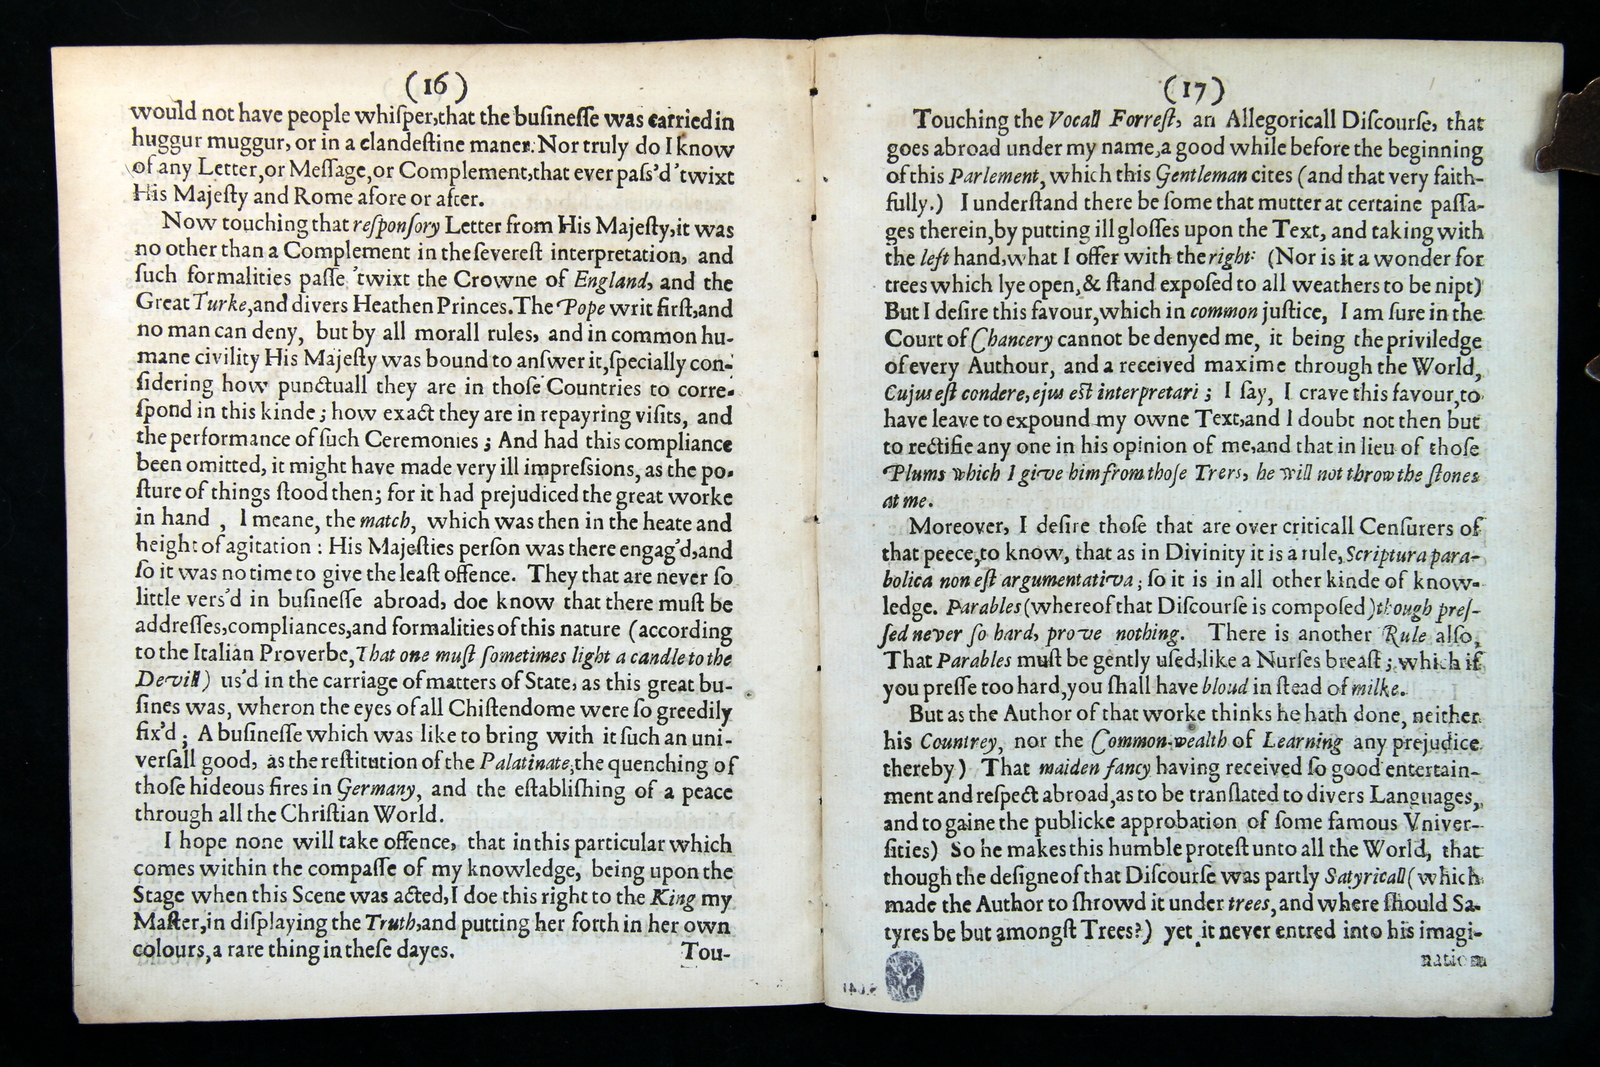 (16)
would not have people whiſper,that the buſineſſe was carried in
huggur muggur, or in a clandeſtine maner. Nor truly do I know
of any Letter,or Meſſage,or Complement,that ever paſs'd 'twixt
His Majeſty and Rome afore or after.
Now touching that reſponſory Letter from His Majeſty,it was
no other than a Complement in the ſevereſt interpretation, and
ſuch formalities paſſe 'twixt the Crowne of England, and the
Great Turke,and divers Heathen Princes. The Pope writ firſt,and
no man can deny, but by all morall rules, and in common hu-
mane civility His Majeſty was bound to anſwer it,ſpecially con-
ſidering how punctuall they are in thoſe Countries to corre-
ſpond in this kinde; how exact they are in repayring viſits, and
the performance of ſuch Ceremonies; And had this compliance
been omitted, it might have made very ill impreſsions, as the po-
ſture of things ſtood then; for it had prejudiced the great worke
in hand , I meane, the match, which was then in the heate and
height of agitation : His Majeſties perſon was there engag'd,and
ſo it was no time to give the leaſt offence. They that are never ſo
little vers'd in buſineſſe abroad, doe know that there muſt be
addreſſes,compliances,and formalities of this nature (according
to the Italian Proverbe,That one muſt ſometimes light a candle to the
Devill) us'd in the carriage of matters of State, as this great bu-
ſines was, wheron the eyes of all Chiſtendome were ſo greedily
fix'd; A buſineſſe which was like to bring with it ſuch an uni-
verſall good, as the reſtitution of the Palatinate,the quenching of
thoſe hideous fires in Germany, and the eſtabliſhing of a peace
through all the Chriſtian World.
I hope none will take offence, that in this particular which
comes within the compaſſe of my knowledge, being upon the
Stage when this Scene was acted,I doe this right to the King my
Maſter,in diſplaying the Truth,and putting her forth in her own
colours,a rare thing in theſe dayes.
Tou-
(17)
Touching the Vocall Forreſt, an Allegoricall Diſcourſe, that
goes abroad under my name,a good while before the beginning
of this Parlement, which this Gentleman cites (and that very faith-
fully.) I underſtand there be ſome that mutter at certaine paſſa-
ges therein,by putting ill gloſſes upon the Text, and taking with
the left hand,what I offer with the right: (Nor is it a wonder for
trees which lye open,& ſtand expoſed to all weathers to be nipt)
But I deſire this favour,which in common juſtice, I am ſure in the
Court of Chancery cannot be denyed me, it being the priviledge
of every Authour, and a received maxime through the World,
Cujus eſt condere, ejus eſt interpretari; I ſay, I crave this favour,to
have leave to expound my owne Text,and I doubt not then but
to rectifie any one in his opinion of me,and that in lieu of thoſe
Plums which I give him from thoſe Trers, he will not throw the ſtones
at me.
Moreover, I deſire thoſe that are over criticall Cenſurers of
that peece,to know, that as in Divinity it is a rule, Scriptura para-
bolica non eſt argumentativa; ſo it is in all other kinde of know-
ledge. Parables (whereof that Diſcourſe is compoſed) though preſ-
ſed never ſo hard, prove nothing. There is another Rule alſo,
That Parables muſt be gently uſed,like a Nurſes breaſt; which if
you preſſe too hard,you ſhall have bloud in ſtead of milke.
But as the Author of that worke thinks he hath done, neither
his Countrey, nor the Common-wealth of Learning any prejudice
thereby) That maiden fancy having received ſo good entertain-
ment and reſpect abroad,as to be tranſlated to divers Languages,
and to gaine the publicke approbation of ſome famous Vniver-
ſities) So he makes this humble proteſt unto all the World, that
though the deſigne of that Diſcourſe was partly Satyricall (which
made the Author to ſhrowd it under trees,and where ſhould Sa-
tyres be but amongſt Trees?) yet it never entred into his imagi-
nation